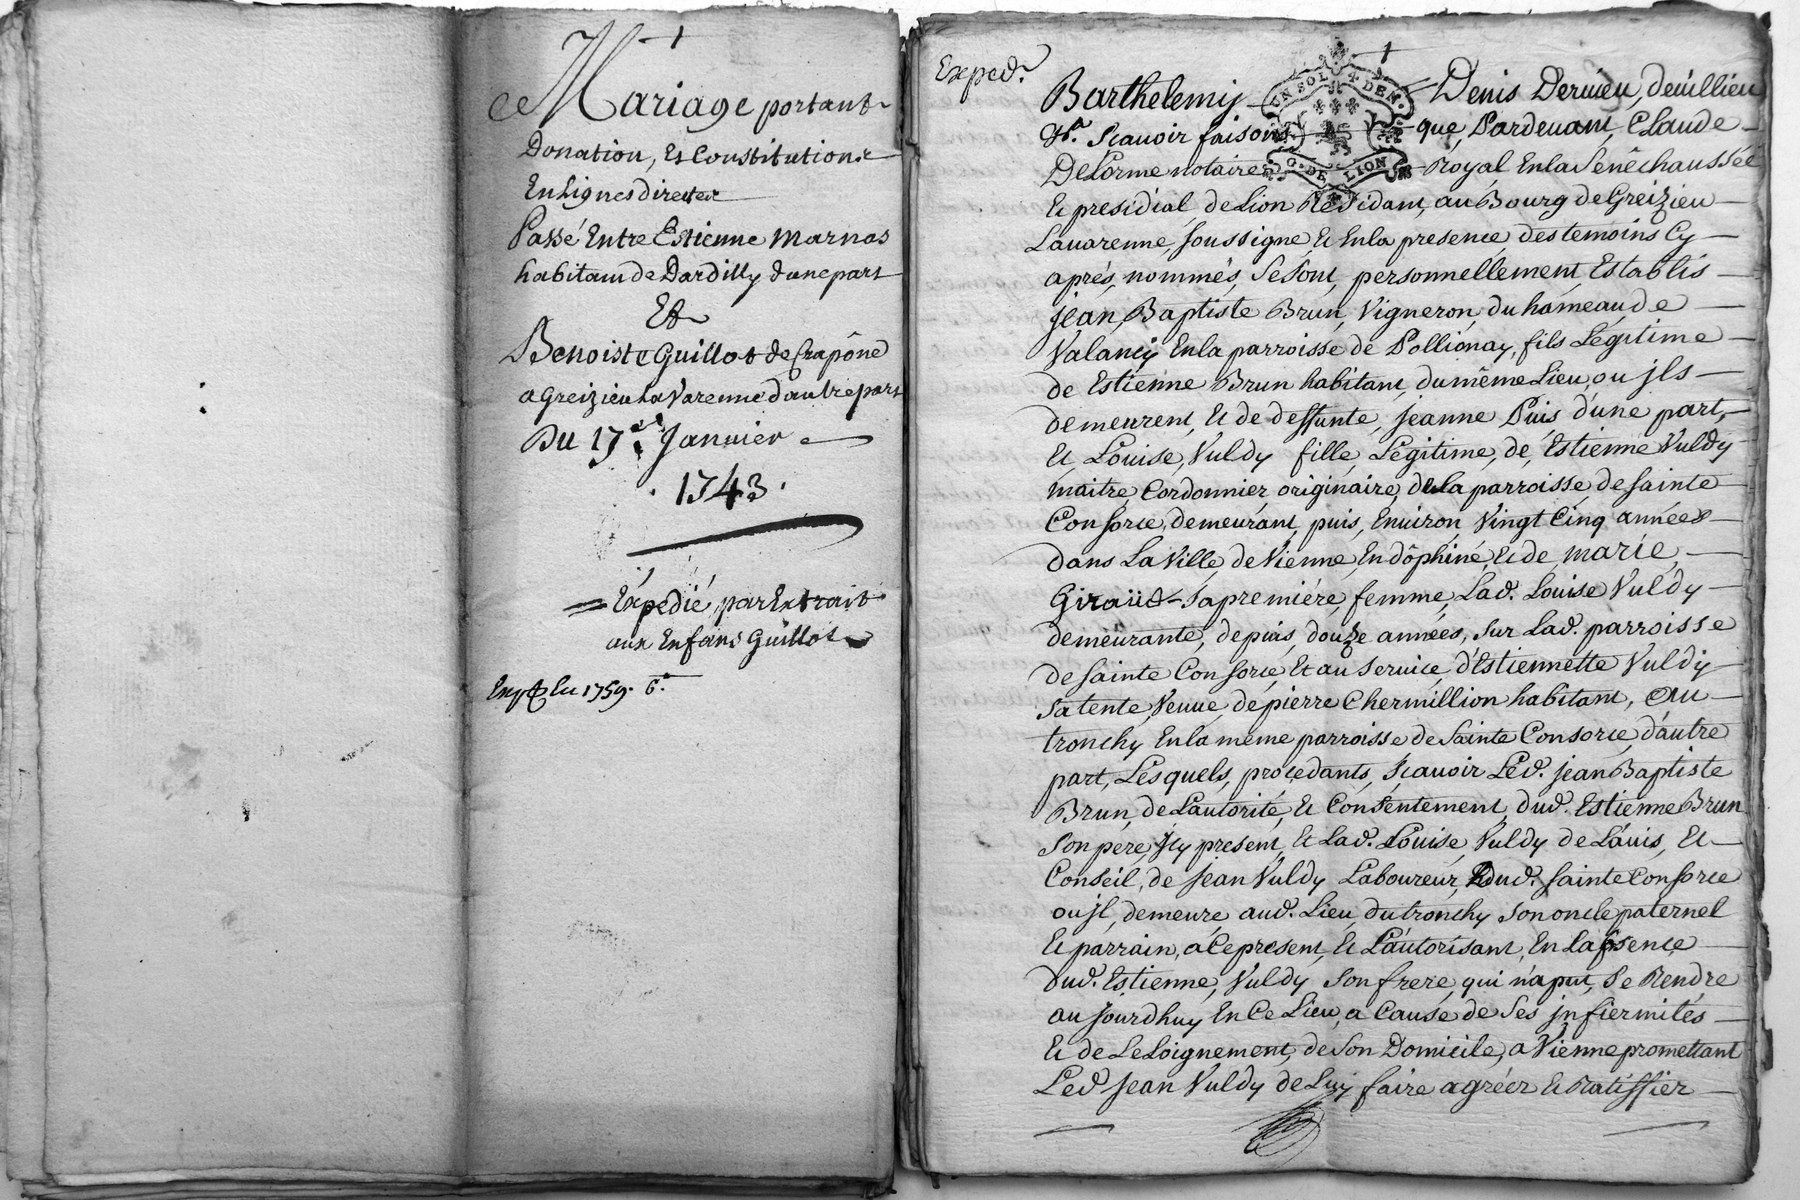 Mariage portant
Donation, Et Constitution
En Lignes directes
Passé Entre Estienne Marnas
habitant de Dardilly d'une part
Et
Benoiste Guillot de Crapône
a Greizieu La Varenne d'autre part
Du 17e Janvier
1743
Expedié, par Extrait
aux Enfans Guillot
1759. 6.
Exped.
Barthelemy Denis Dervieu, devillieu
Sçavoir faisons que, Pardevant, Claude
DeLorme notaire Royal En la Senêchaussée
UN SOL 4. DEN.
G. DE LION
Et presidial de Lion Residant, au Bourg de Greizieu
Lavarenne, soussigne, Et En la presence, des temoins Cy
aprés, nommés, Se sont, personnellement, Establis
jean, Baptiste Brun, Vigneron, du hameau de
Valancy En la parroisse de Pollionay, fils Légitime
de Estienne Brun habitant, du même Lieu, ou jls
demeurent, Et de deffunte, jeanne Puis d'une part,
Et Louise, Vuldy fille, Légitime, de, Estienne Vuldy
maitre, Cordonnier, originaire, de la parroisse, de sainte
Consorce, demeurant, puis, Environ, Vingt Cinq années
dans La Ville, de Vienne, En dôphiné, Et de, marie,
Giraüd sa premiére, femme, Lad. Louise Vuldy
demeurante, depuis, douze années, sur Lad. parroisse
de sainte Consorce, Et au service, d'Estiennette Vuldy
sa tente, Veuve, de pierre Chermillion habitant, au
tronchy En la même parroisse de Sainte Consorce, d'autre
part, Lesquels, procedants, sçavoir Led. jean Baptiste
Brun, de L'autorité, Et Consentement, dud. Estienne Brun
son pere, jcy present, Et Lad. Louise, Vuldy de L'avis, Et
Conseil, de jean Vuldy Laboureur, dud. sainte Consorce
ou jl, demeure aud. Lieu, du tronchy son oncle paternel
Et parrain, a Ce present, Et L'autorisant, En L'absence
dud. Estienne, Vuldy son frere, qui n'a put, Se Rendre
au jourdhuy En Ce Lieu, a Cause, de Ses jnfiermités
Et de Leloignement, de Son Domicile, a Vienne promettant
Led jean Vuldy de Luy faire agréer Et Ratiffier